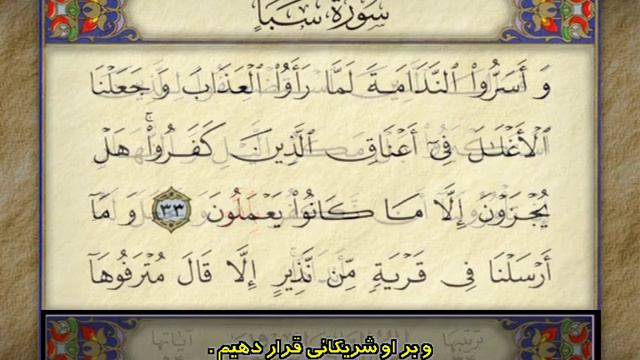 سورة سبأ
وَ أَسَرُّوا۟ ٱلنَّدَامَةَ لَمَّا رَأَوُا۟ ٱلْعَذَابَ وَ جَعَلْنَا
ٱلْأَغْلَـٰلَ فِىٓ أَعْنَاقِ ٱلَّذِينَ كَفَرُوا۟ۚ هَلْ
يُجْزَوْنَ إِلَّا مَا كَانُوا۟ يَعْمَلُونَ ٣٣ وَ مَآ
أَرْسَلْنَا فِى قَرْيَةٍ مِّن نَّذِيرٍ إِلَّا قَالَ مُتْرَفُوهَآ
و بر او شریکانی قرار دهیم .